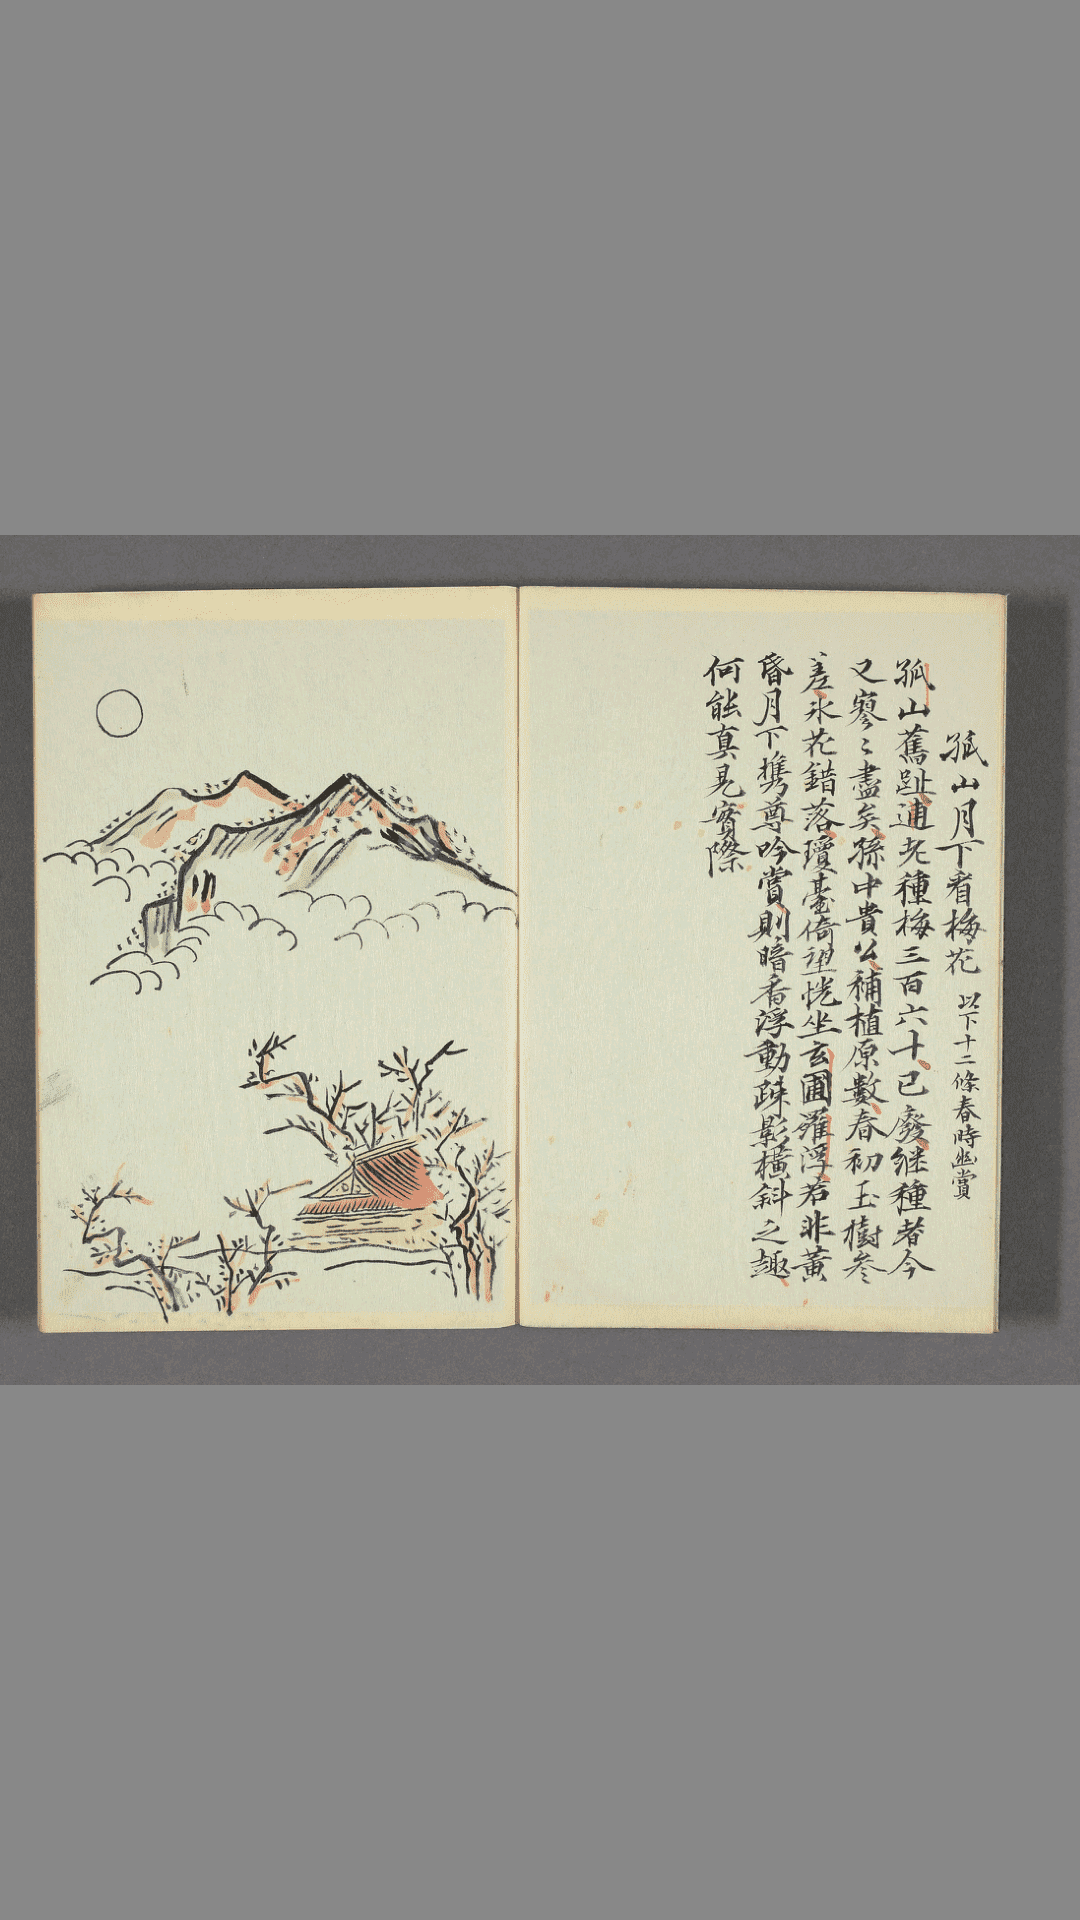 孤山月下看梅花 以下十二條春時幽賞
孤山舊趾逋老種梅三百六十已廢継種者今
又寥〻盡矣孫中貴公補植原數春初玉樹参
差氷花錯落瓊臺倚望恍坐玄圃羅浮若非黄
昏月下携尊吟嘗則暗香浮動疎影横斜之趣
何能真見實際